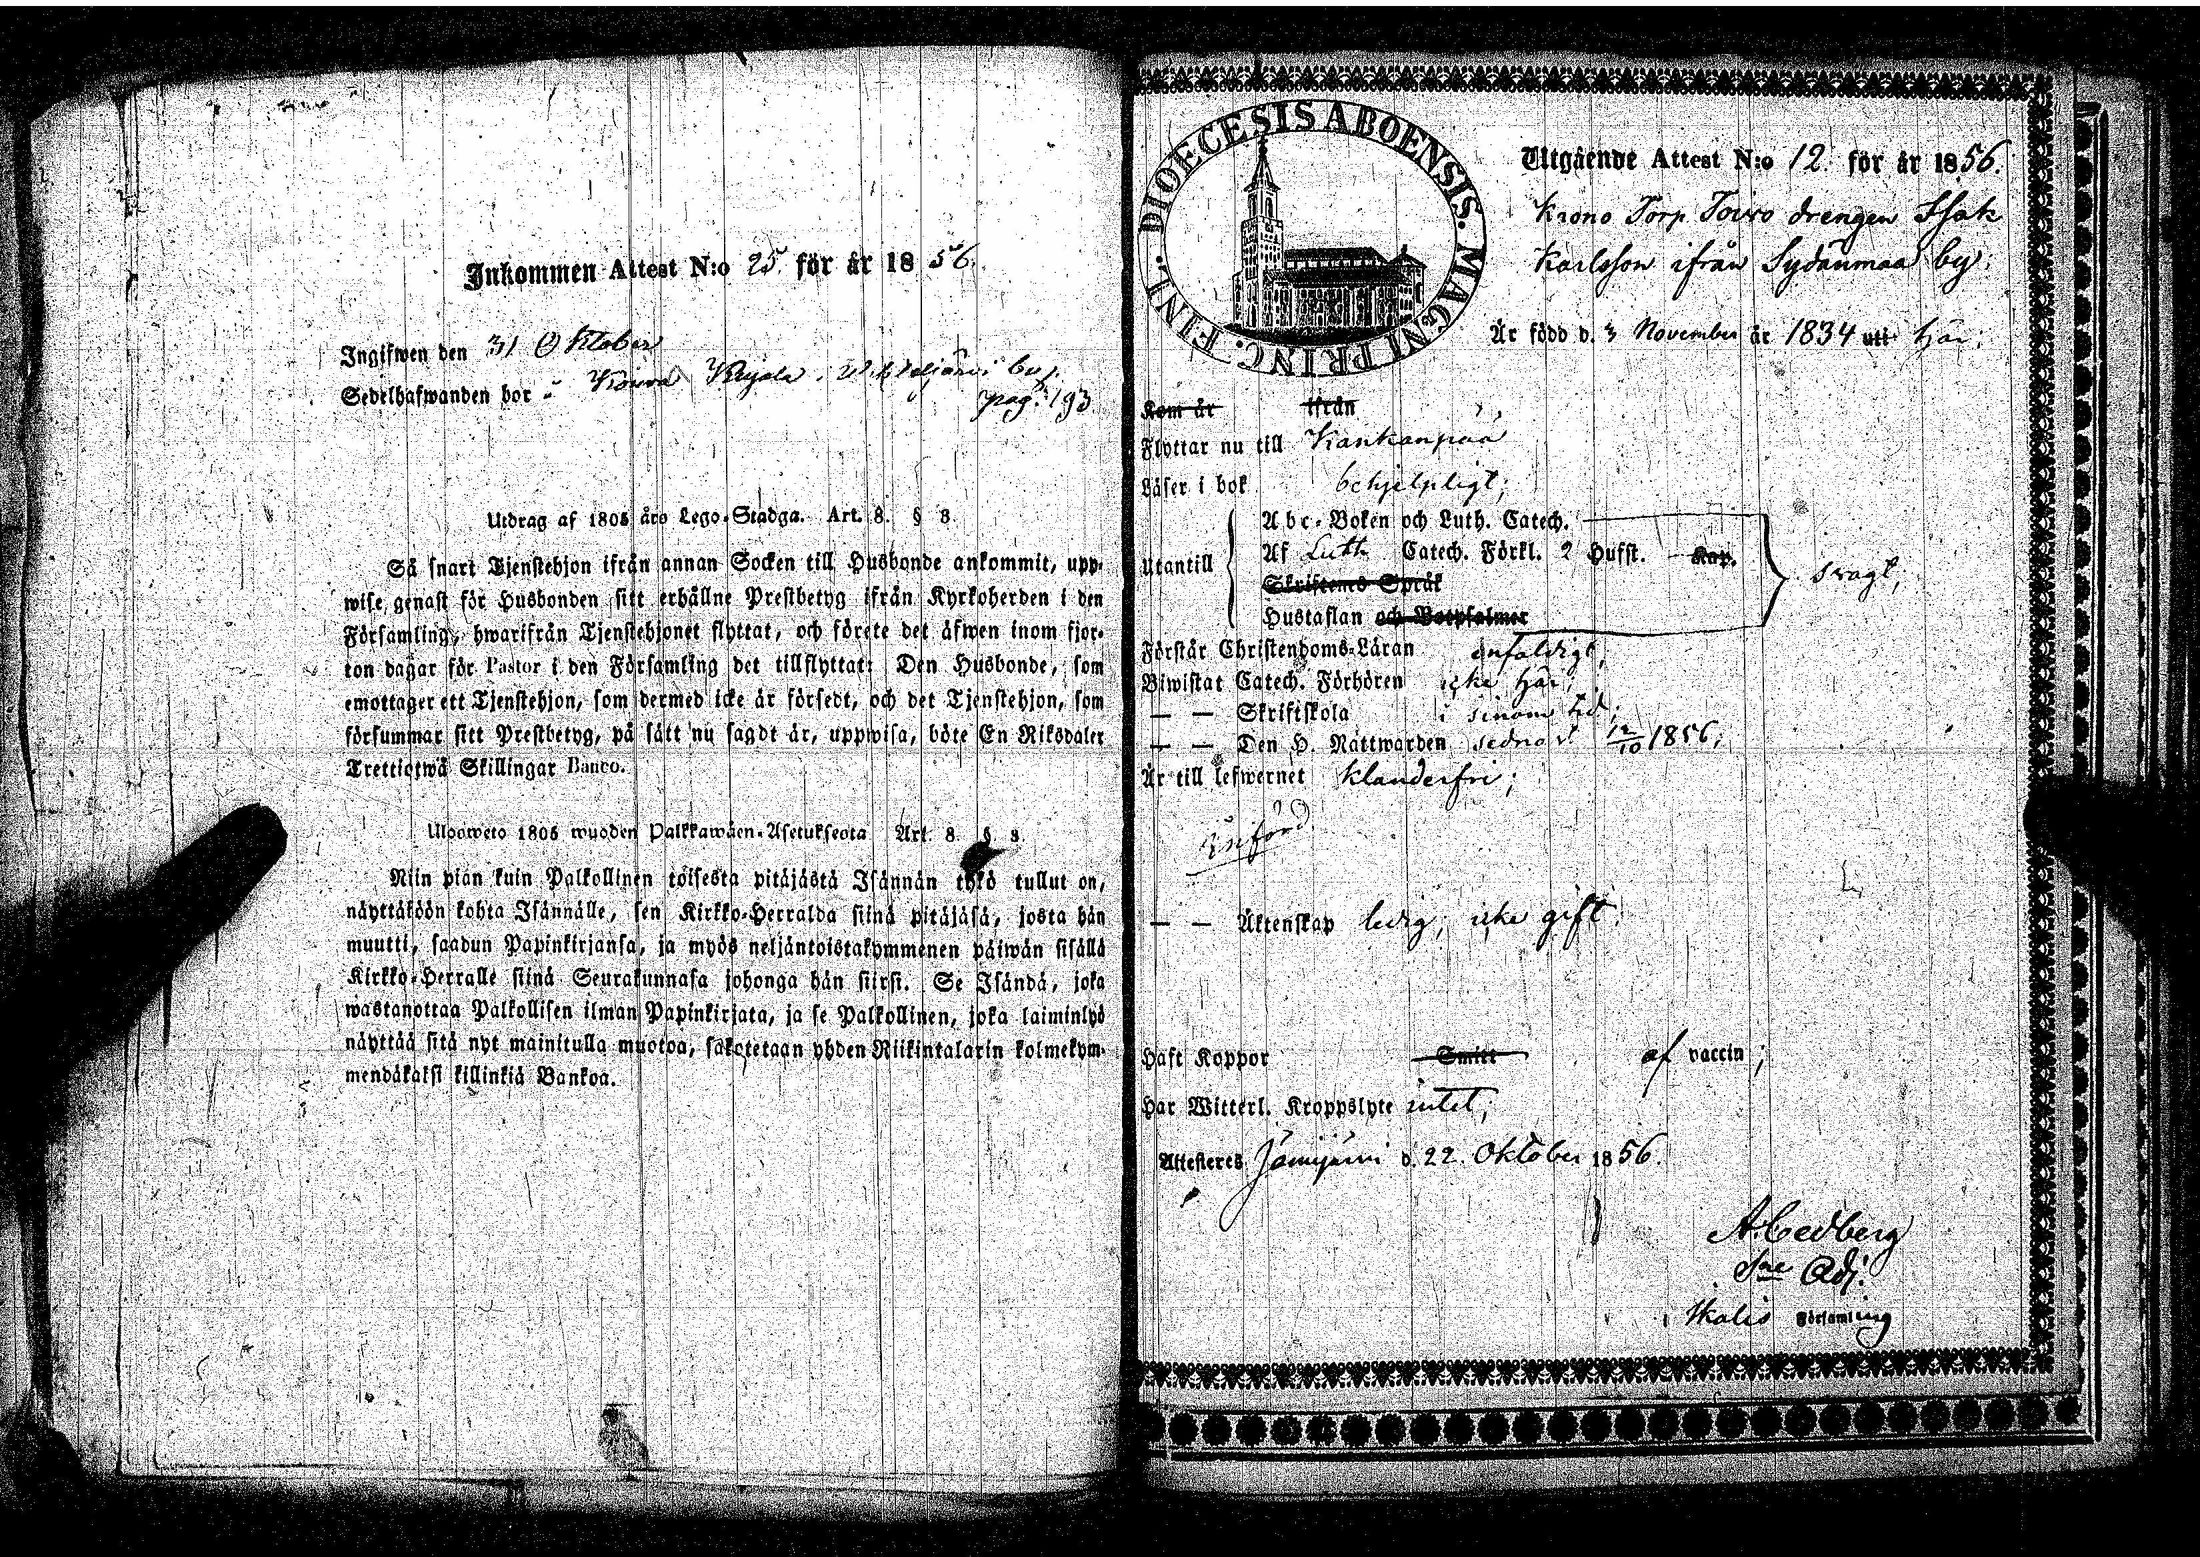 Inkommen Attest N:o 25 för år 1856.
Ingifwen den 31 Oktober
Sedelhafwanden bor i Kouvo by,
pag. 193
Utdrag af 1805 års Lego-Stadga. Art. 8. § 3.
Så snart Tjenstehjon ifrån annan Socken till Husbonde ankommit, upp-
wise genast för Husbonden sitt erhållne Prestbetyg ifrån Kyrkoherden i den
Församling, hwarifrån Tjenstehjonet flyttat, och förete det äfwen inom fjor-
ton dagar för Pastor i den Församling det tillflyttat: Den Husbonde, som
emottager ett Tjenstehjon, som dermed icke är försedt, och det Tjenstehjon, som
försummar sitt Prestbetyg, på sätt nu sagdt är, uppwisa, böte En Riksdaler
Trettiotwå Skillingar Banco.
Ulosweto 1805 wuoden Palkkawäen-Asetuksesta Art. 8. § 3.
Niin pian kuin Palkollinen toisesta pitäjästä Isännän tykö tullut on,
näyttäköön kohta Isännälle, sen Kirkko-Herralda siinä pitäjäsä, josta hän
muutti, saadun Papinkirjansa, ja myös neljäntoistakymmenen päiwän sisällä
Kirkko-Herralle siinä Seurakunnasa johonga hän siirsi. Se Isändä, joka
wastanottaa Palkollisen ilman Papinkirjata, ja se Palkollinen, joka laiminlyö
näyttää sitä nyt mainitulla muotoa, sakotetaan yhden Riikintalarin kolmekym-
mendäkaksi killinkiä Bankoa.
DIOECESIS ABOENSIS. MAGNI PRINC. FINL.
Utgående Attest N:o 12. för år 1856.
Krono Torp Toivo drengen Isak
Karlsson ifrån Sydänmaa by;
Är född d. 3 November år 1834 uti här;
Kom år ifrån
Flyttar nu till Kankanpää
Läser i bok behjelpligt;
Utantill
Abc-Boken och Luth. Catech.
Af Luth. Catech. Förkl. 2 Hufst. Kap.
Skriftens Språk
Hustaflan och Botpsalmer
svagt;
Förstår Christendoms-Läran enfaldigt;
Biwistat Catech. Förhören icke här;
— — Skriftskola i sinom tid;
— — Den H. Nattwarden sednast 12/10 1856;
Är till lefwernet klanderfri;
— — Äktenskap ledig; icke gift.
Haft Koppor Smitt af vaccin;
Har Witterl. Kroppslyte intet;
Attesteras Jämijärvi d. 22. Oktober 1856.
A. Cedberg
Sac. Adj.
i Ikalis Församling